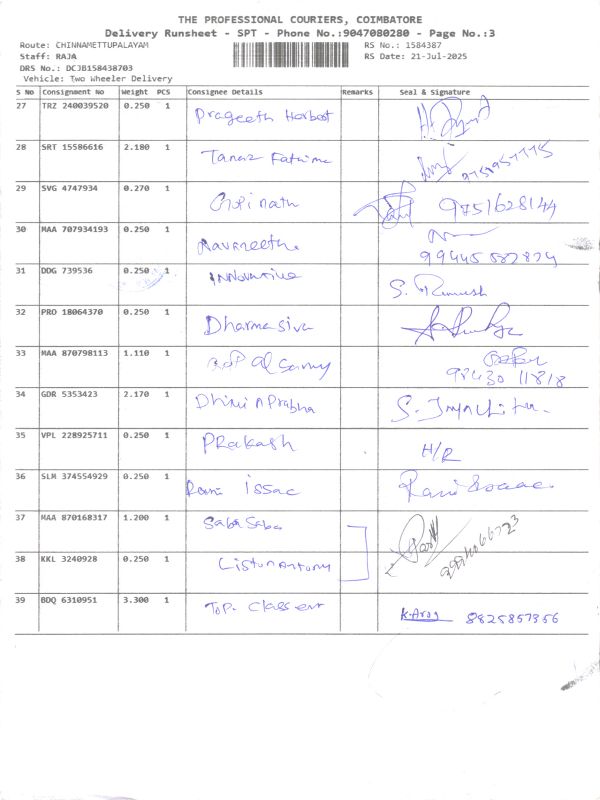 THE PROFESSIONAL COURIERS, COIMBATORE
Delivery Runsheet - SPT - Phone No.:9047080280 - Page No.:3
Route: CHINNAMETTUPALAYAM RS No.: 1584387
Staff: RAJA RS Date: 21-Jul-2025
DRS No.: DCJB158438703
Vehicle: Two Wheeler Delivery
S No Consignment No Weight PCS Consignee Details Remarks Seal & Signature
27 TRZ 240039520 0.250 1 Prageeth Harbest
28 SRT 15586616 2.180 1 Tanaz Fatima
29 SVG 4747934 0.270 1 Gopinath 9751628144
30 MAA 707934193 0.250 1 Navaneetha
31 DDG 739536 0.250 1 Innovative S. Ramesh
32 PRO 18064370 0.250 1 Dharmasiva
33 MAA 870798113 1.110 1
98430 11818
34 GDR 5353423 2.170 1 Prabha
35 VPL 228925711 0.250 1 Prakash H/R
36 SLM 374554929 0.250 1 Rani Issac Rani Isaac
37 MAA 870168317 1.200 1 Saba Saba
38 KKL 3240928 0.250 1 Liston Antony
39 BDQ 6310951 3.300 1 Top. Class ent K.Arog 8825857356